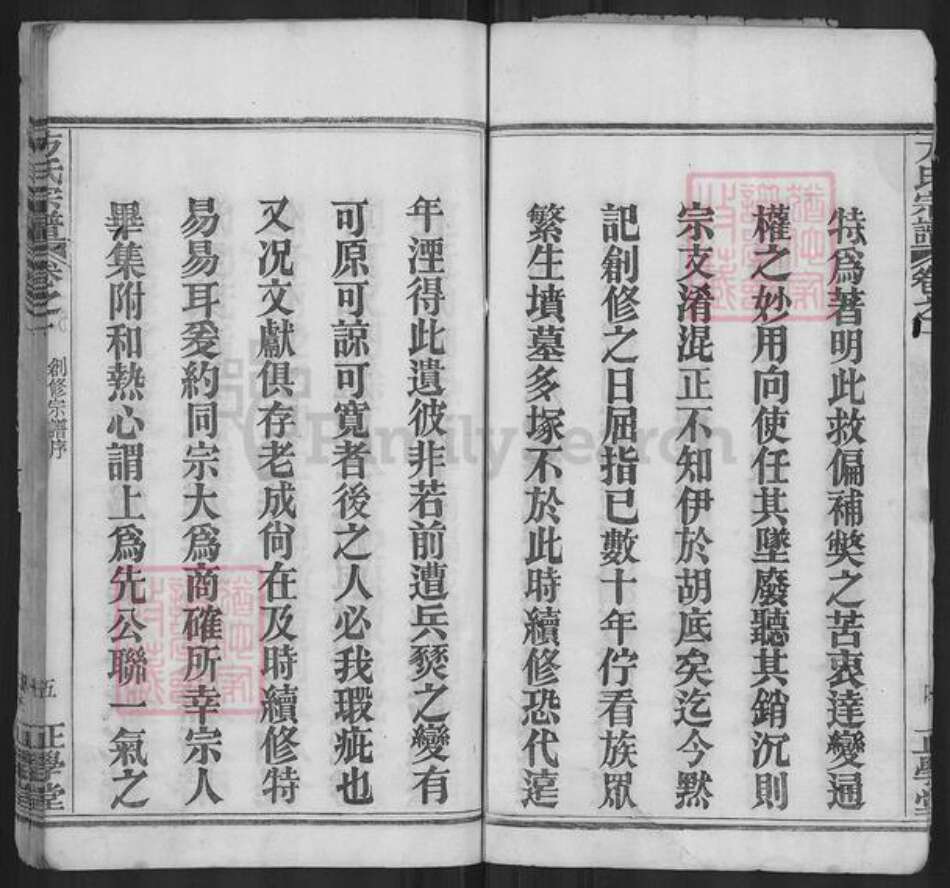 特爲著明此救偏補獘之苦衷達變通
權之妙用向使任其墜廢聽其銷沉則
宗支淆混正不知伊於胡底矣迄今黙
記創修之日屈指已數十年佇看族眾
繁生墳墓多塚不於此時續修恐代遠
年湮得此遺彼非若前遭兵燹之變有
可原可諒可寬者後之人必我瑕疵也
又况文獻俱存老成尙在及時續修特
易易耳爰約同宗大爲商確所幸宗人
畢集附和熱心謂上爲先公聯一氣之
方氏宗譜
卷之一
創修宗譜序
五
正學堂
FamilySearch